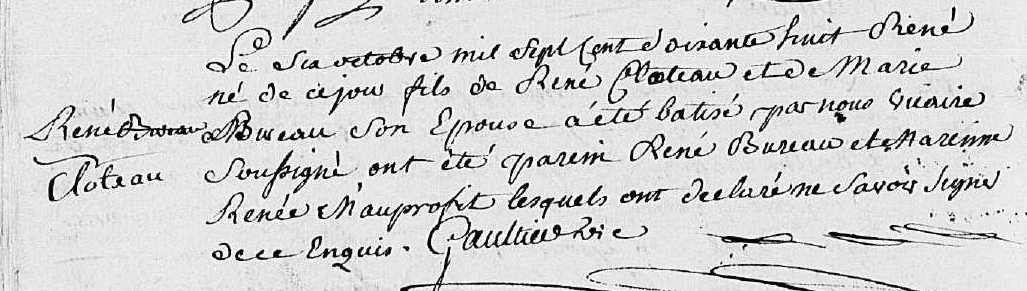 Le six octobre mil sept Cent soixante huit René
né de ce jour fils de René Cloteau et de Marie
René Bureau
Bureau son Epouse a été batisé par nous vicaire
Cloteau
soussigné ont été parein René Bureau et Mareinne
Renée Mauprofit lesquels ont declaré ne savoir signer
de ce Enquis. Gaultier vic